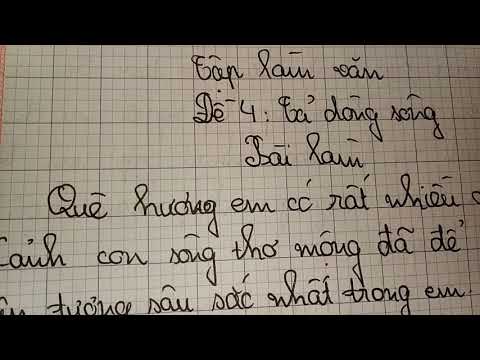 Tập làm văn
Đề 4: Tả dòng sông
Bài làm
Quê hương em có rất nhiều
cảnh con sông thơ mộng đã để
tượng sâu sắc nhất trong em